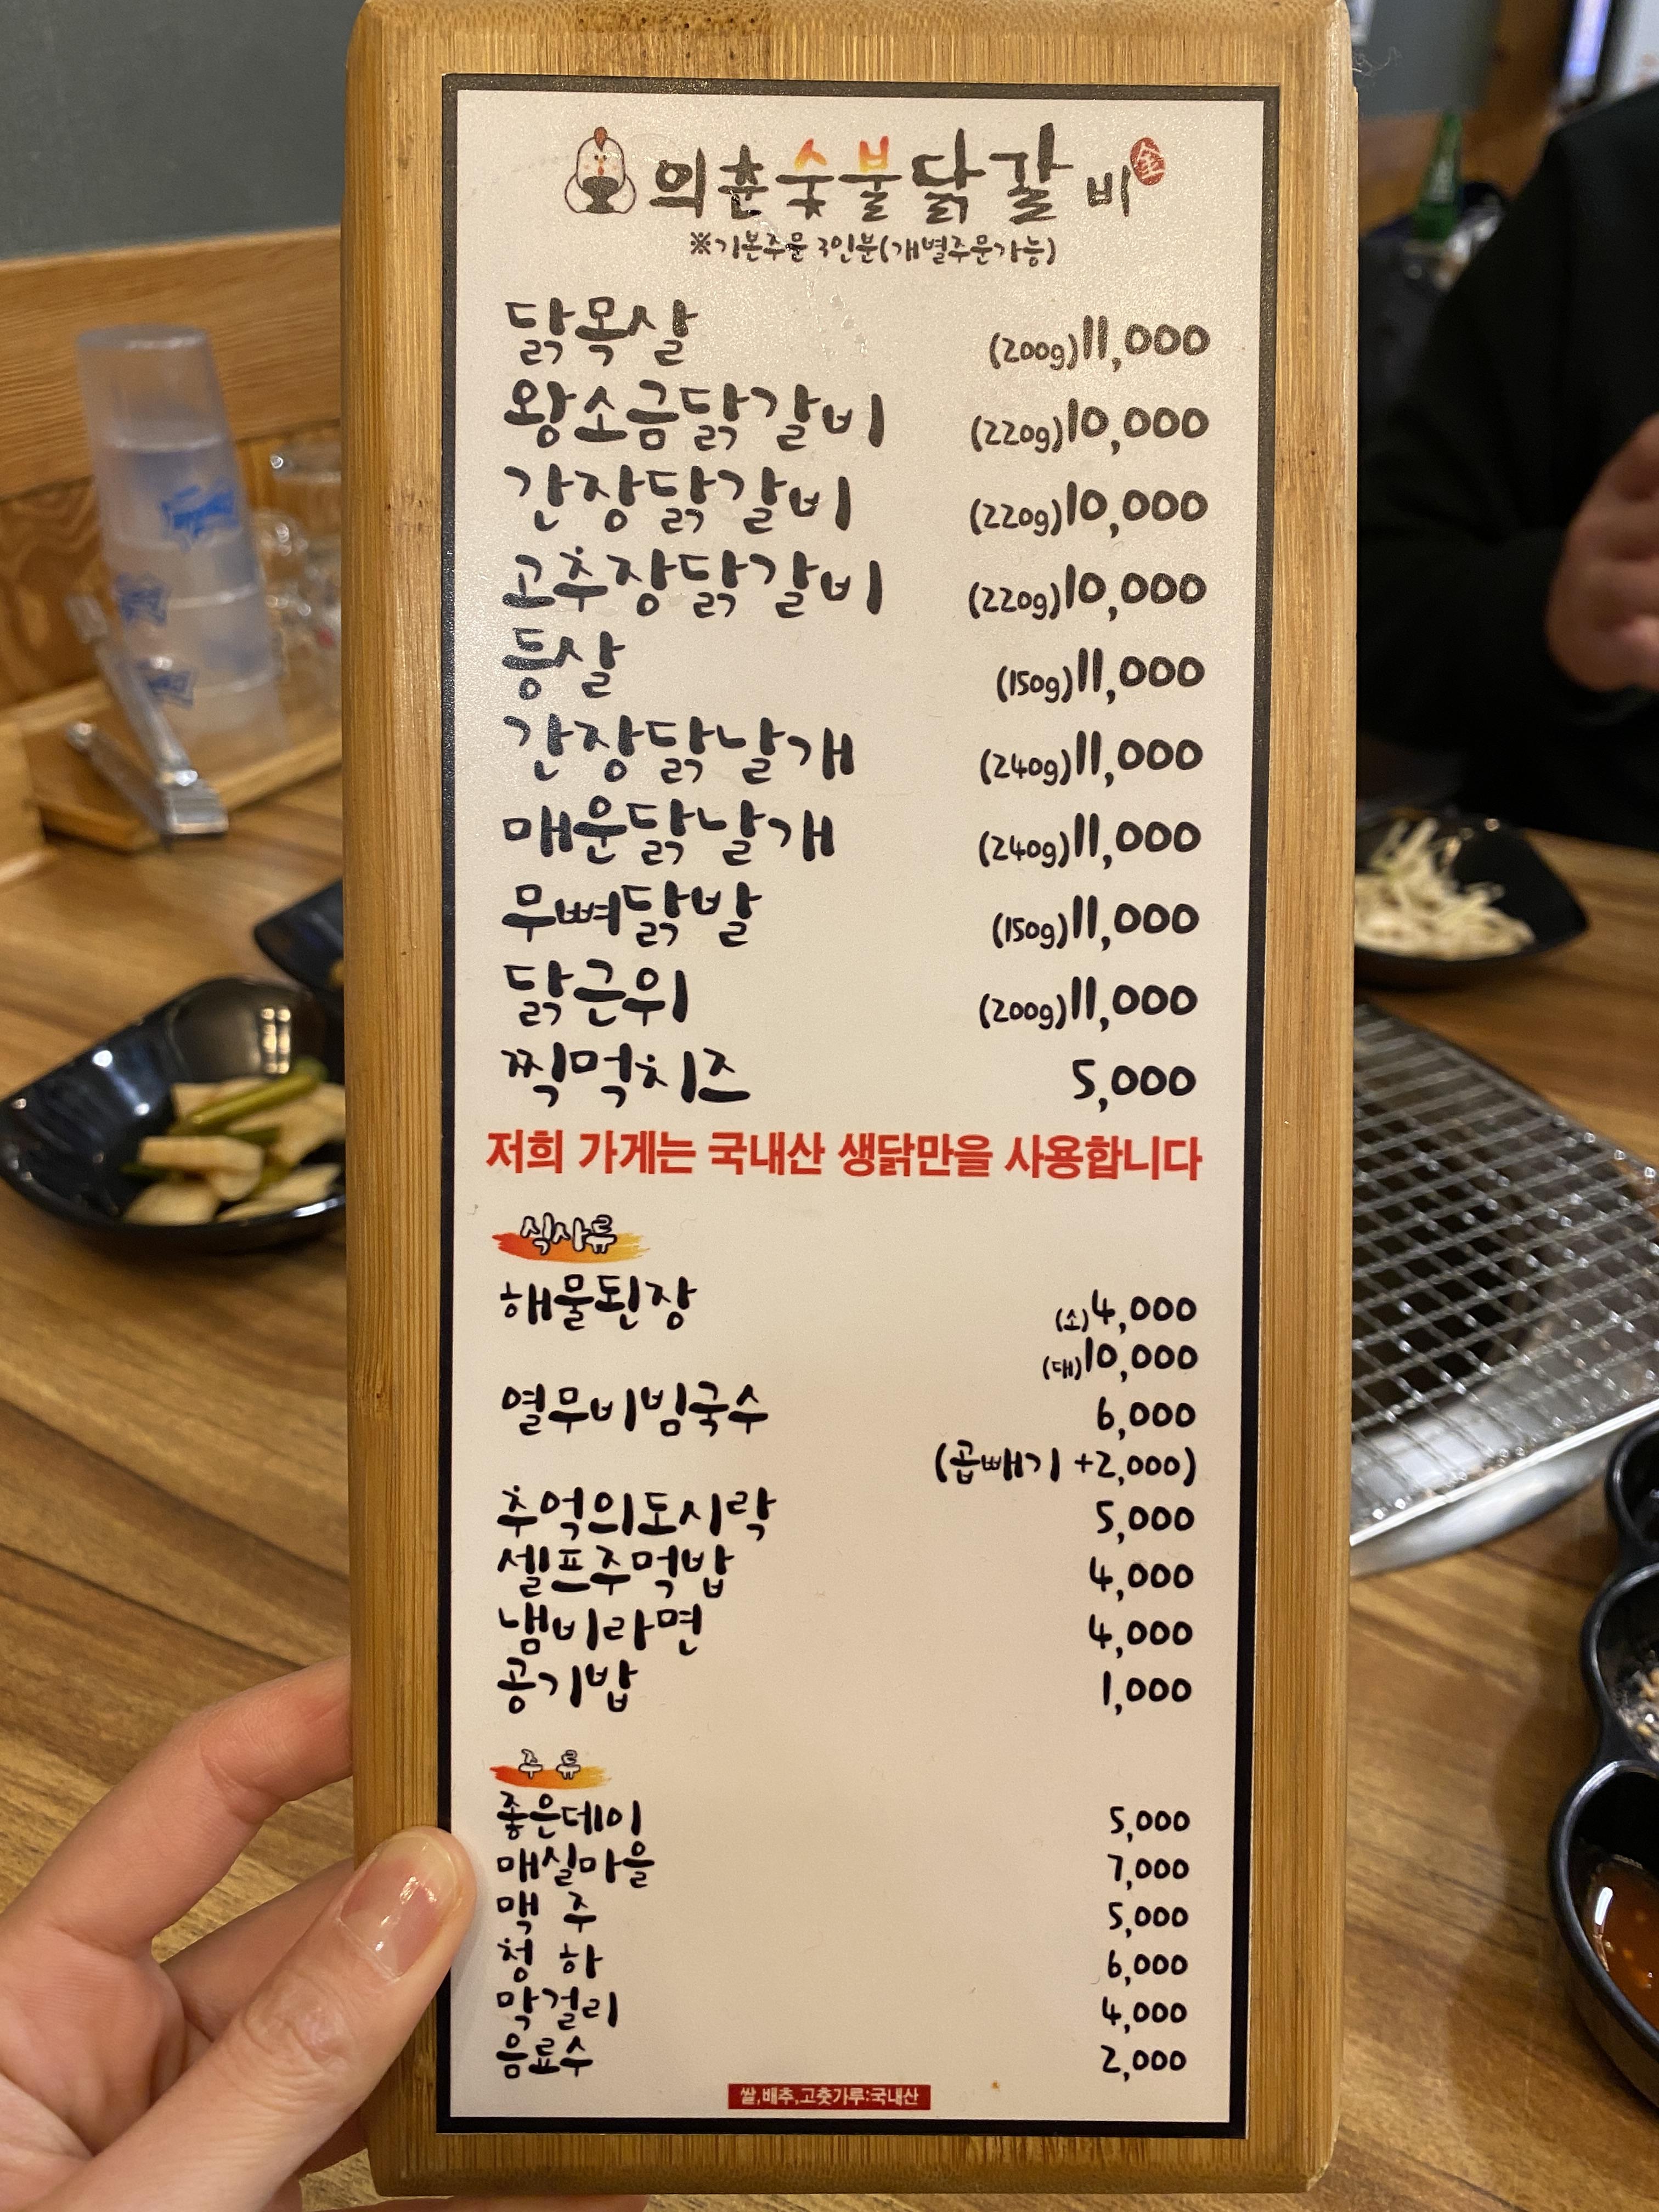 의춘숯불닭갈비
※기본주문 3인분(개별주문가능)
닭목살 (200g)11,000
왕소금닭갈비 (220g)10,000
간장닭갈비 (220g)10,000
고추장닭갈비 (220g)10,000
등살 (150g)11,000
간장닭날개 (240g)11,000
매운닭날개 (240g)11,000
무뼈닭발 (150g)11,000
닭근위 (200g)11,000
찍먹치즈 5,000
저희 가게는 국내산 생닭만을 사용합니다
식사류
해물된장 (소)4,000
(대)10,000
열무비빔국수 6,000
(곱빼기 +2,000)
추억의도시락 5,000
셀프주먹밥 4,000
냄비라면 4,000
공기밥 1,000
주 류
좋은데이 5,000
매실마을 7,000
맥 주 5,000
청 하 6,000
막걸리 4,000
음료수 2,000
쌀,배추,고춧가루:국내산